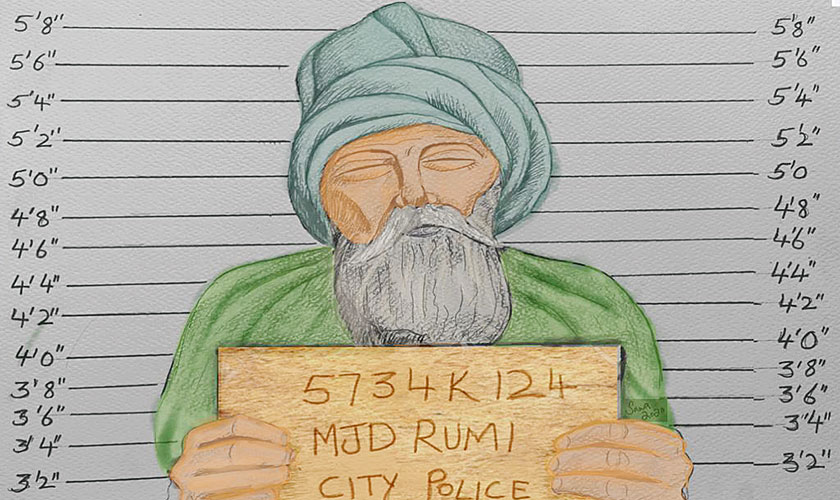 5'8" 5'8"
5'6" 5'6"
5'4" 5'4"
5'2" 5'2"
5'0 5'0
4'8" 4'8"
4'6" 4'6"
4'4" 4'4"
4'2" 4'2"
4'0" 4'0"
3'8" 3'8"
3'6" 3'6"
3'4" 3'4"
3'2" 3'2"
5734K124
MJD RUMI
CITY POLICE